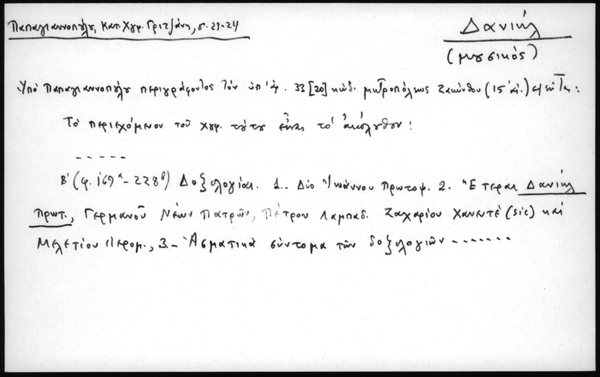 Παπαγιαννοπούλου, Κατ. Χγφ. Γριτζάνη, σ. 23-24
Δανιήλ
(μουσικός)
Ὑπό Παπαγιαννοπούλου περιγράφοντος τόν ὑπ' ἀρ. 33 [20] κώδ. μητροπόλεως Ζακύνθου (15 αἰ.)
Τό περιεχόμενον τοῦ χγφ. τούτου εἶναι τό ἀκόλουθον:
-----
Β' (φ. 169α - 228β) Δοξολογίαι. 1.. Δύο Ἰωάννου Πρωτοψ. 2. Ἕτεραι Δανιήλ
Πρωτ., Γερμανοῦ Νέων Πατρῶν, Πέτρου Λαμπαδ. Ζαχαρίου Χανεντέ (sic) καί
Μελετίου Ἱερομ., 3.- Ἀσματικά σύντομα τῶν δοξολογιῶν -------